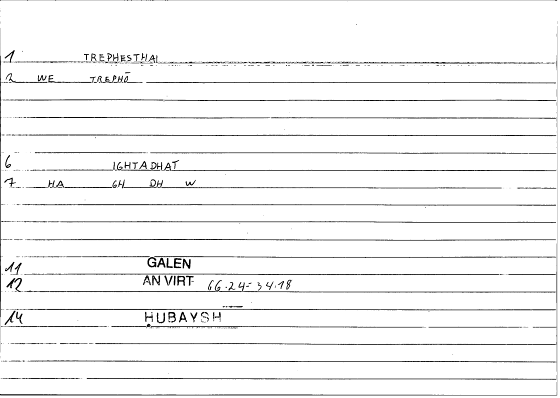 1 TREPHESTHAI
2 WE TREPHŌ
6 IGHTADHAT
7 HA GH DH W
11 GALEN
12 AN VIRT 66.24= 34.18
14 HUBAYSH